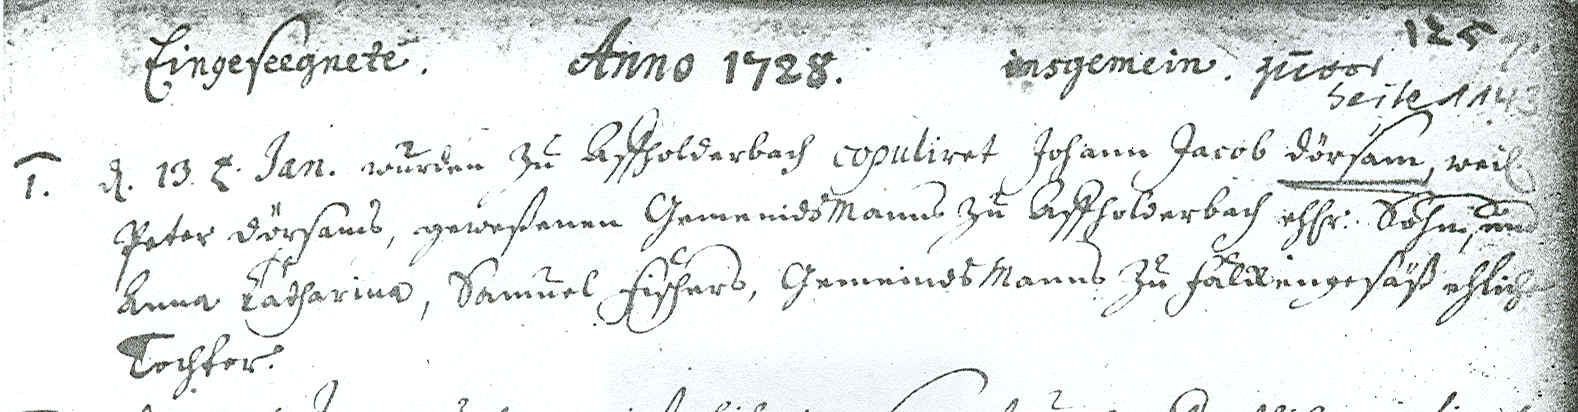 125
Eingeseegnete. Anno 1728. insgemein.
Seite 114
1. d. 13. t. Jan. wurden zu Affholderbach copuliret Johann Jacob Dörsam, weil.
Peter Dörsams, geweßenen Gemeinds Manns zu Affholderbach ehl. Sohn, und
Anna Catharina, Samuel Fischers, Gemeinds Manns zu Fälckengesäß ehlich
Tochter.